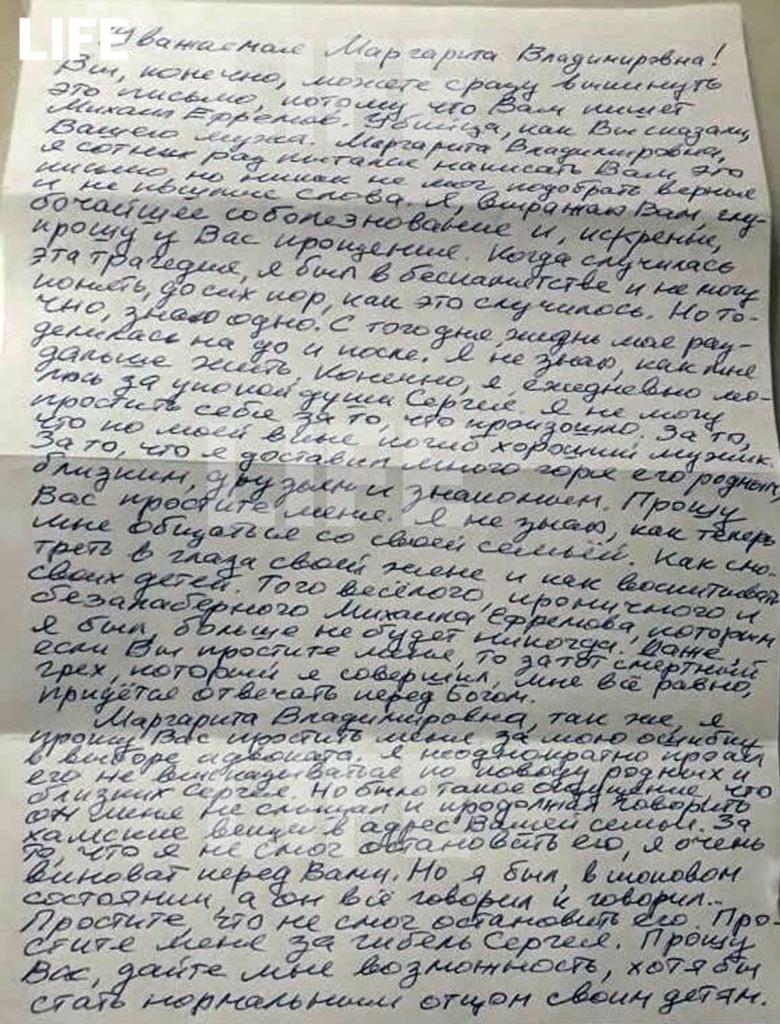 LIFE
Уважаемая Маргарита Владимировна!
Вы, конечно, можете сразу выкинуть
это письмо, потому что Вам пишет
Михаил Ефремов. Убийца, как Вы сказали,
Вашего мужа. Маргарита Владимировна,
я сотни раз пытался написать Вам это
письмо, но никак не мог подобрать верные
и не пошлые слова. Я, выражаю Вам, глу-
бочайшее соболезнование и, искренне,
прошу у Вас прощение. Когда случилась
эта трагедия, я был в беспамятстве и не могу
понять, до сих пор, как это случилось. Но то-
чно, знаю одно. С того дня, жизнь моя раз-
делилась на до и после. Я не знаю, как мне
дальше жить. Конечно, я, ежедневно мо-
люсь за упокой души Сергея. Я не могу
простить себе за то, что произошло. За то,
что по моей вине погиб хороший мужик.
За то, что я доставил много горя его родным,
близким, друзьям и знакомым. Прошу
Вас простите меня. Я не знаю, как теперь
мне общаться со своей семьёй. Как смо-
треть в глаза своей жене и как воспитывать
своих детей. Того весёлого, ироничного и
безалаберного Михаила Ефремова, которым
я был, больше не будет никогда. Даже,
если Вы простите меня, то за тот смертный
грех, который я совершил, мне всё равно,
придётся отвечать перед Богом.
Маргарита Владимировна, так же, я
прошу Вас простить меня за мою ошибку
в выборе адвоката. Я неоднократно просил
его не высказываться по поводу родных и
близких Сергея. Но было такое ощущение, что
он меня не слышал и продолжал говорить
хамские вещи в адрес Вашей семьи. За
то, что я не смог остановить его, я очень
виноват перед Вами. Но я был, в шоковом
состоянии, а он всё говорил и говорил...
Простите, что не смог остановить его. Про-
стите меня за гибель Сергея. Прошу
Вас, дайте мне возможность, хотя бы
стать нормальным отцом своим детям.